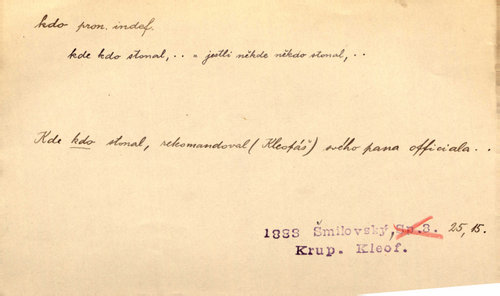 kdo pron. indef.
kde kdo stonal, . . = jestli někde někdo stonal, . .
Kde kdo stonal, rekomandoval (Kleofáš) svého pana officiala . .
1883 Šmilovský, Sp. 3. 25, 15.
Krup. Kleof.